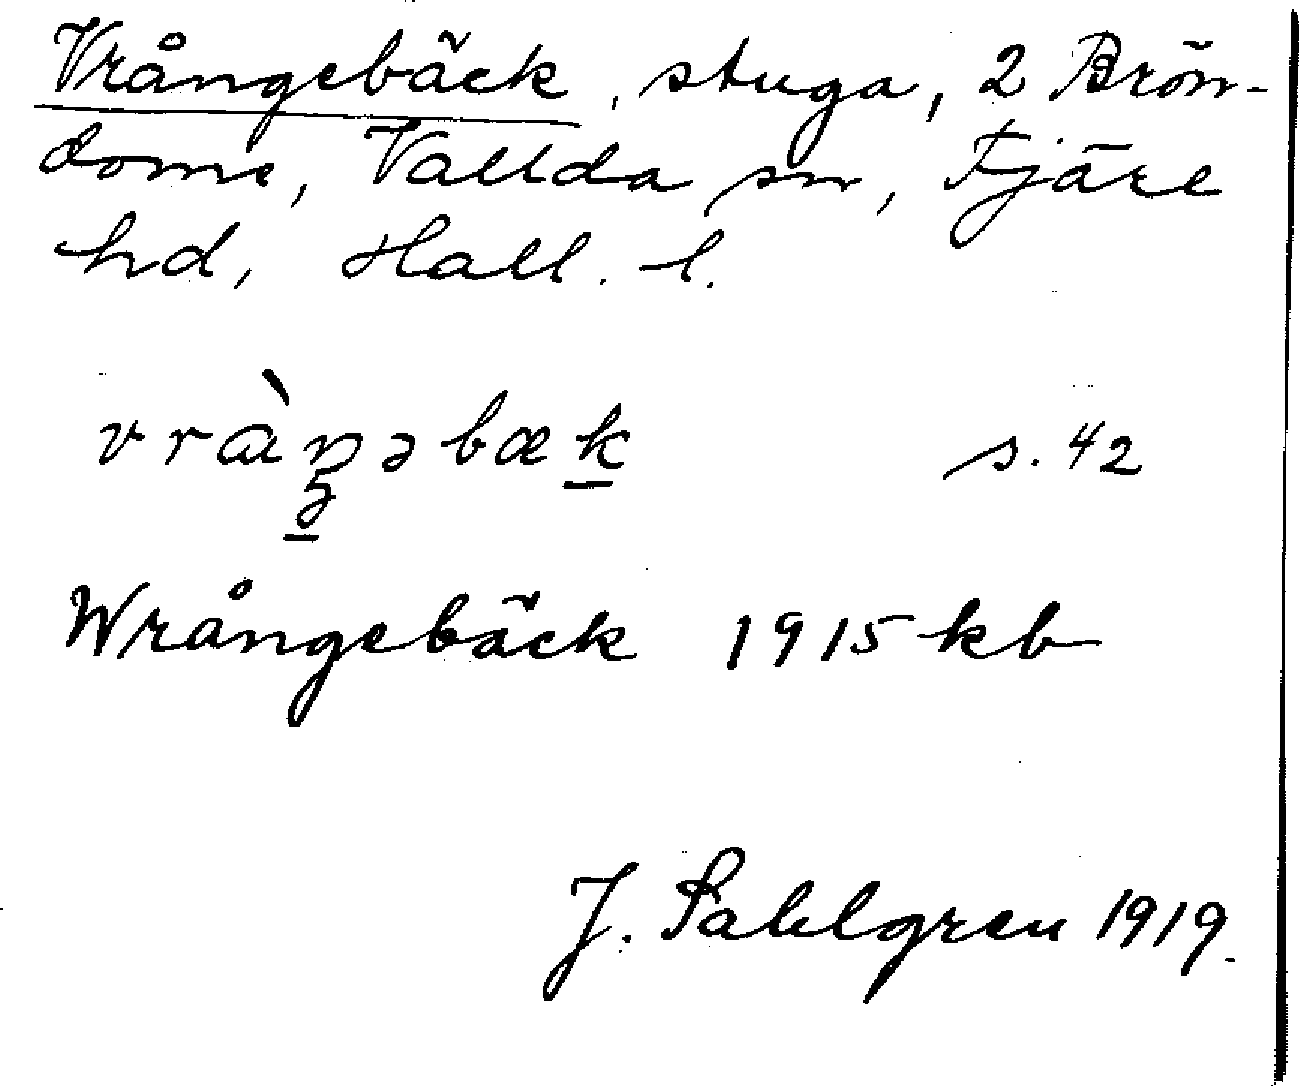 Vrångebäck, stuga, 2 Brön-
dome, Vallda sn, Fjäre
hd, Hall. l.
vrὰŋəbæk s. 42
Wrångebäck 1915 kb
J. Sahlgren 1919.